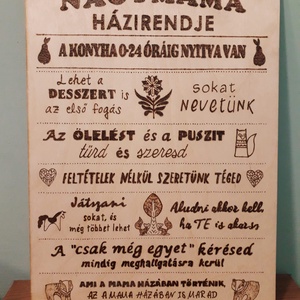 NAGYMAMA
HÁZIRENDJE
A KONYHA 0-24 ÓRÁIG NYITVA VAN
Lehet a
DESSZERT is
az első fogás
sokat
NEVETÜNK
Az ÖLELÉST és a PUSZIT
tűrd és szeresd
FELTÉTELEK NÉLKÜL SZERETÜNK TÉGED
Játszani
sokat, és
még többet lehet
Aludni akkor kell,
ha TE is akarsz
A "csak még egyet" kérésed
mindig meghallgatásra kerül
AMI A MAMA HÁZÁBAN TÖRTÉNIK,
AZ A MAMA HÁZÁBAN IS MARAD